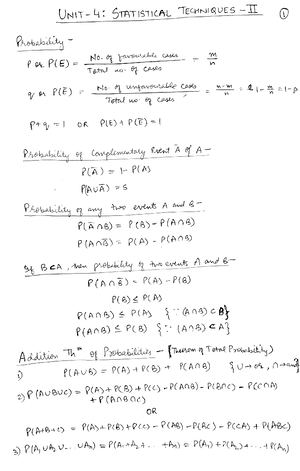 UNIT-4: STATISTICAL TECHNIQUES-II ①
Probability -
P or P(E) = No. of favourable cases / Total no. of cases = m/n
q or P(Ē) = No. of unfavourable cases / Total no. of cases = n-m/n = 1 - m/n = 1-p
p+q = 1 OR P(E) + P(Ē) = 1
Probability of Complementary Event Ā of A -
P(Ā) = 1 - P(A)
P(A∪Ā) = S
Probability of any two events A and B -
P(Ā∩B) = P(B) - P(A∩B)
P(A∩B̄) = P(A) - P(A∩B)
If B⊂A, then probability of two events A and B -
P(A∩B̄) = P(A) - P(B)
P(B) ≤ P(A)
P(A∩B) ≤ P(A) {∵ (A∩B) ⊂ B}
P(A∩B) ≤ P(B) {∵ (A∩B) ⊂ A}
Addition Thm of Probabilities - (Theorem of Total Probability)
1) P(A∪B) = P(A) + P(B) + P(A∩B) {∪→or, ∩→and}
2) P(A∪B∪C) = P(A) + P(B) + P(C) - P(A∩B) - P(B∩C) - P(C∩A)
+ P(A∩B∩C)
OR
P(A+B+C) = P(A) + P(B) + P(C) - P(AB) - P(BC) - P(CA) + P(ABC)
3) P(A₁∪A₂∪... ∪An) = P(A₁+A₂+ ... +An) = P(A₁) + P(A₂) + ... + P(An)